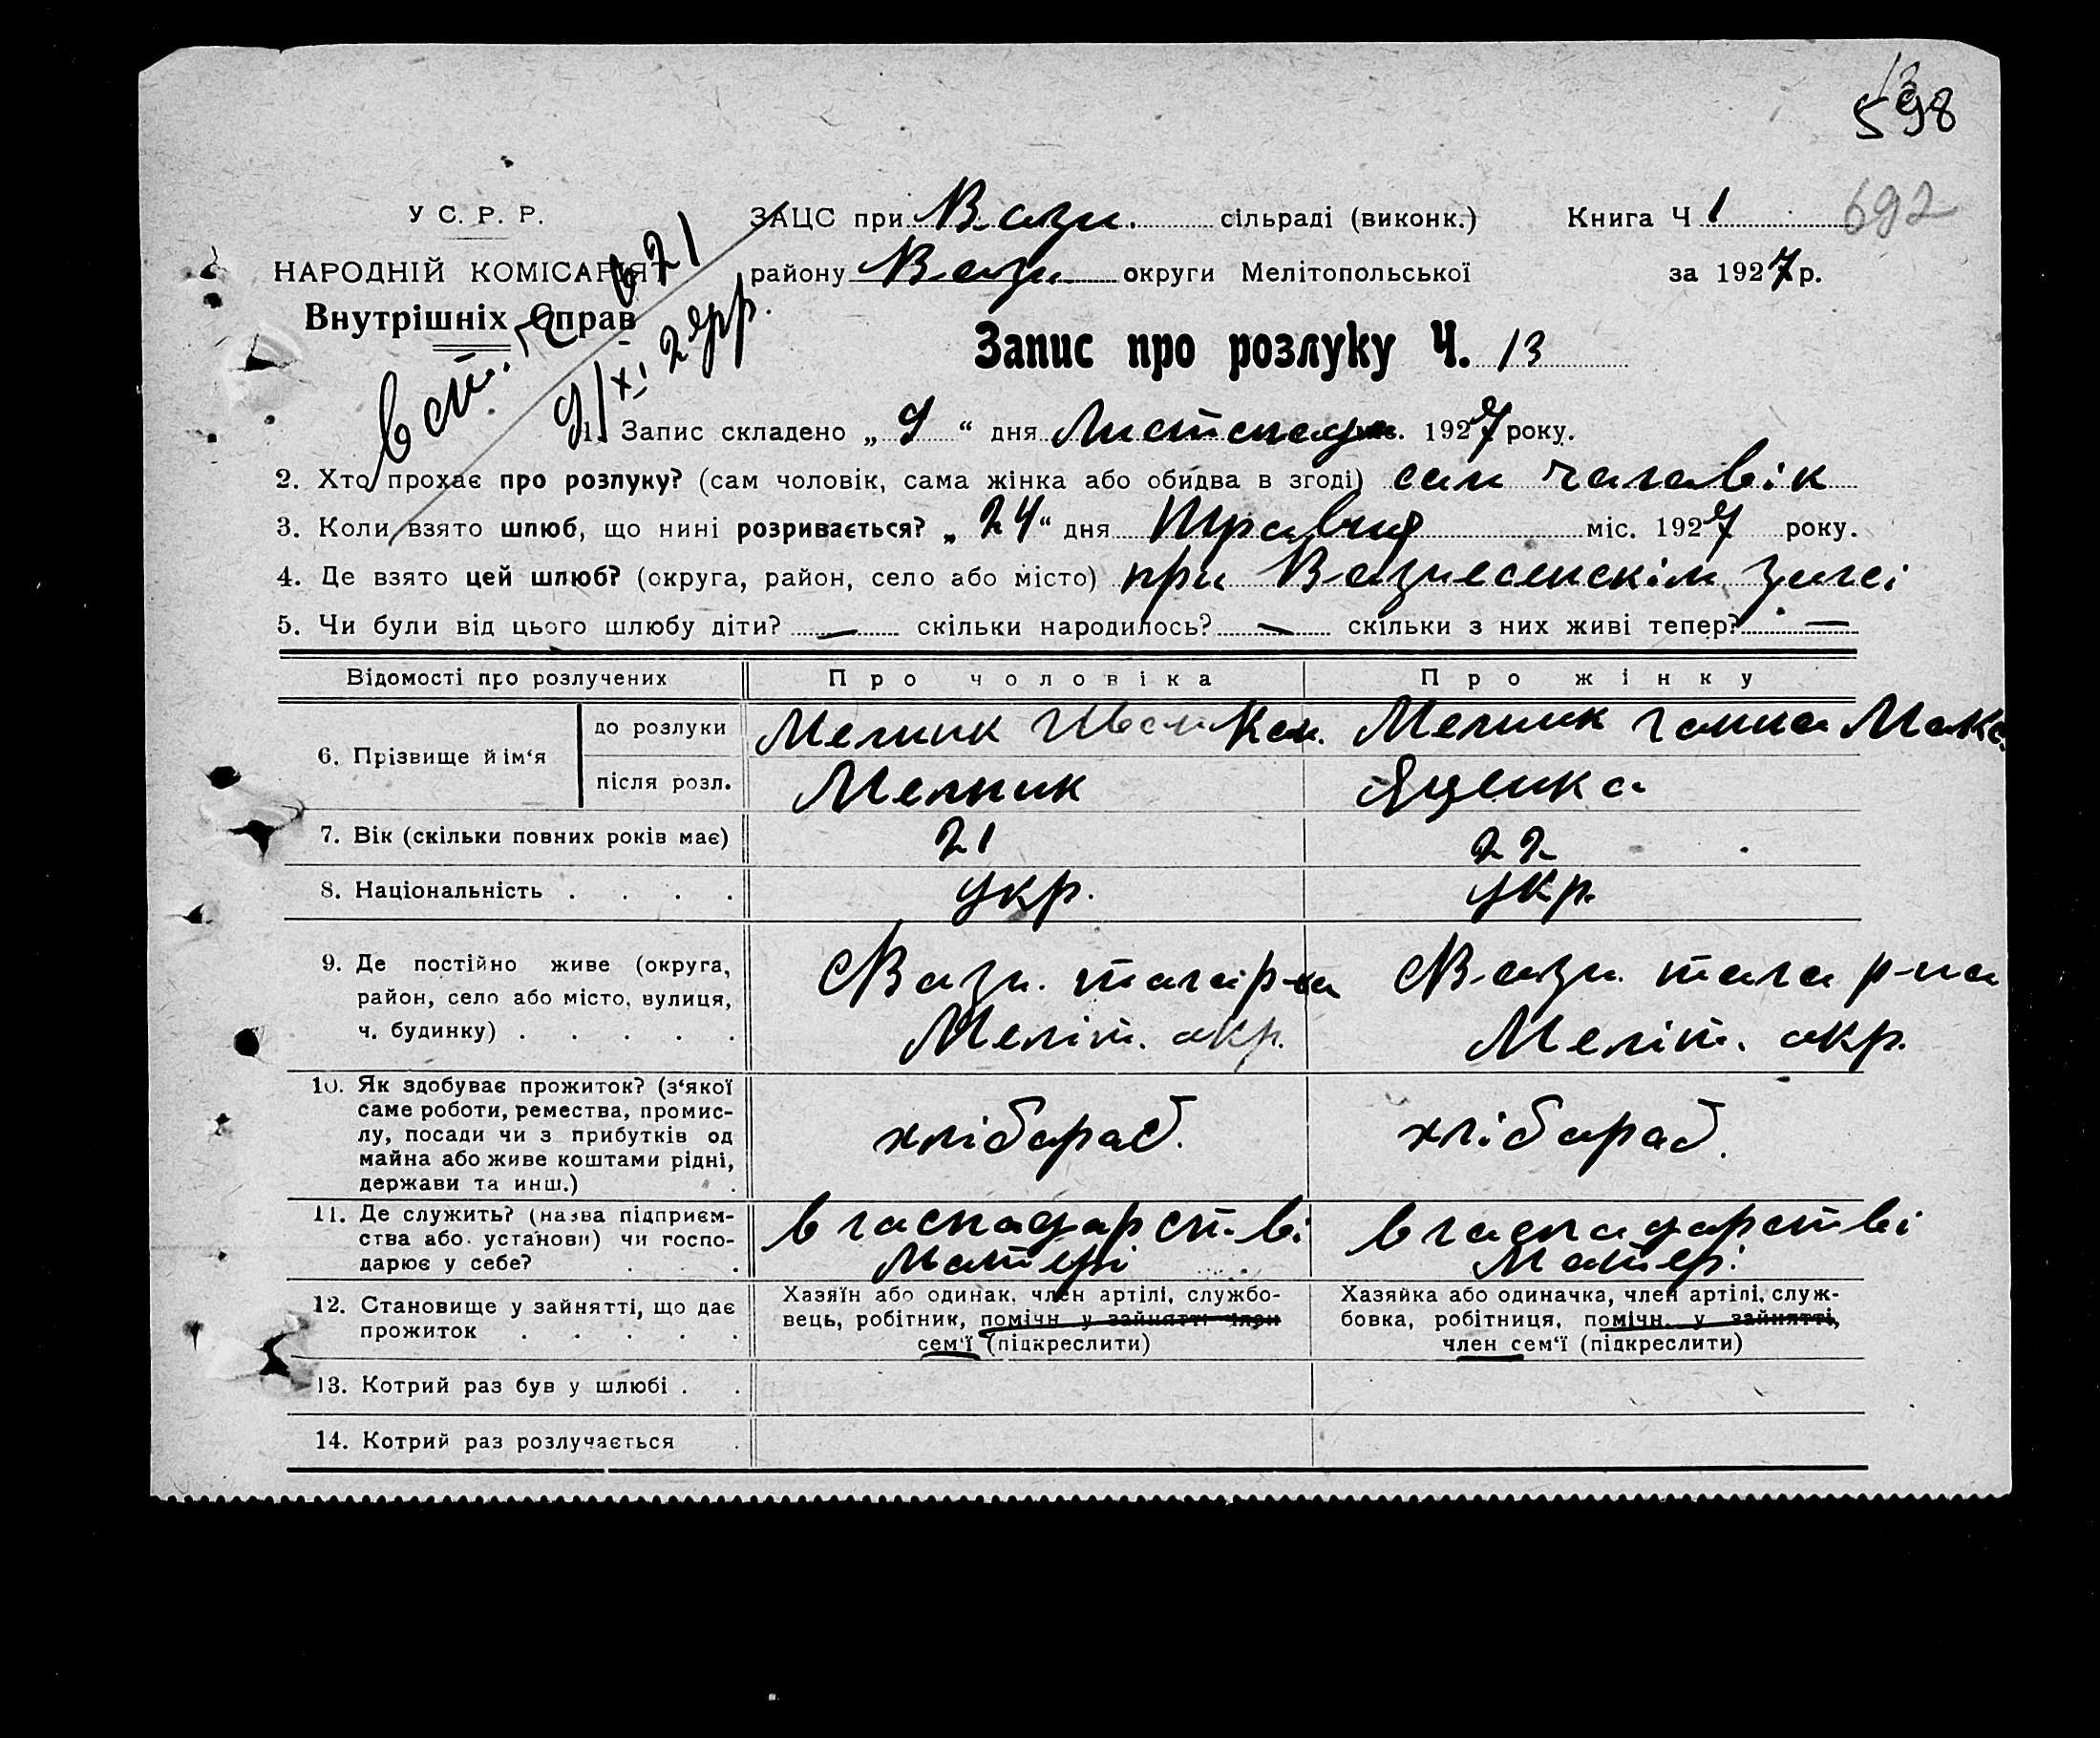 598
692
У С. Р. Р.
НАРОДНІЙ КОМІСАРІЯТ
Внутрішніх Справ
ЗАЦС при Возн. сільраді (виконк.) Книга Ч 1
району Возн. округи Мелітопольської за 1927 р.
Запис про розлуку Ч. 13
1. Запис складено „ 9 “ дня Листопада міс. 1927 року.
2. Хто прохає про розлуку? (сам чоловік, сама жінка або обидва в згоді) сам чаловік
3. Коли взято шлюб, що нині розривається? „ 24 “ дня Травня міс. 1927 року.
4. Де взято цей шлюб? (округа, район, село або місто) при Вознесенскім
5. Чи були від цього шлюбу діти? — скільки народилось? — скільки з них живі тепер? —
Відомості про розлучених Про чоловіка Про жінку
6. Прізвище й ім‘я до розлуки Мелник Іван Кон. Мелник Ганна Макс.
після розл. Мелник Яценко
7. Вік (скільки повних років має) 21 22
8. Національність . . . . укр. укр.
9. Де постійно живе (округа, район, село або місто, вулиця, ч. будинку) . . . . . Возн. тога р-на Меліт. окр. Возн. тога р-на Меліт. окр.
10. Як здобуває прожиток? (з‘якої саме роботи, ремества, промислу, посади чи з прибутків од майна або живе коштами рідні, держави та инш.) . хлібороб. хлібороб.
11. Де служить? (назва підприємства або установи) чи господарює у себе? . . . в господарстві матері в господарстві матері
12. Становище у зайнятті, що дає прожиток . . . . . Хазяїн або одинак, член артілі, службовець, робітник, помічн. у зайнятті член сем‘ї (підкреслити) Хазяйка або одиначка, член артілі, службовка, робітниця, помічн. у зайнятті, член сем‘ї (підкреслити)
13. Котрий раз був у шлюбі . .
14. Котрий раз розлучається .